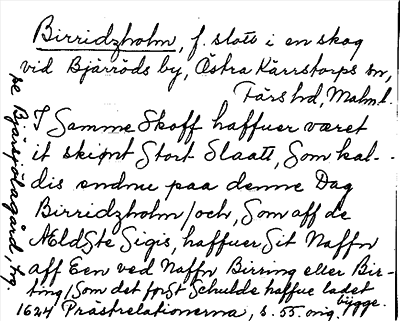 Birridzholm, f. slott i en skog
vid Bjärröds by, Östra Kärrstorps sn,
Färs hd, Malm.l.
I Samme Skoff haffuer været
it skiønt Stort Slaatt, Som kal-
dis endnu paa denne Dag
Birridzholm/och, Som aff de
Ældste Sigis, haffuer Sit Naffn
aff Een ved Naffn Birring eller Bir-
ting/Som det først Schulde haffue ladet
bÿgge.
1624 Prästrelationerna, s. 55. orig.
se Bjärsjölagård, hg.